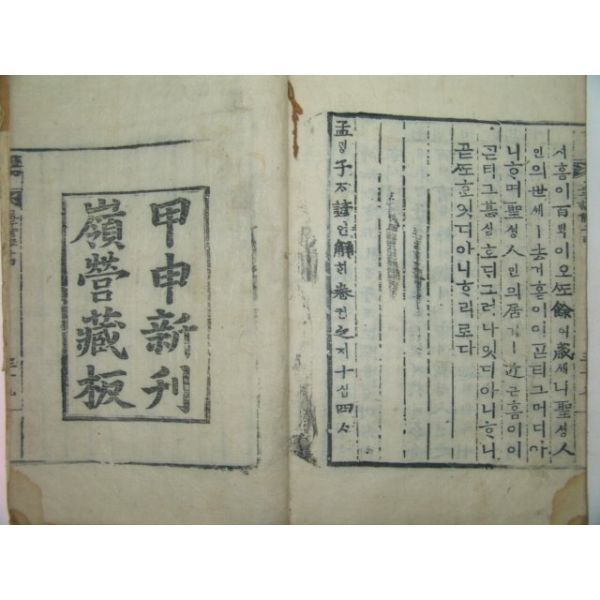 셔흠이百ᄇᆡᆨ이오ᄯᅩ餘여歲셰니聖셩
人인의世셰ㅣ去거흠이이곧티그머디아
니ᄒᆞ며聖셩人인의居거ㅣ近근흠이이
곧티그흠실호ᄃᆡ그러나잇디아니ᄒᆞ니
곧ᄯᅩᄒᆞᆫ잇디아니ᄒᆞ리로다
孟ᄆᆡᆼ子ᄌᆞ諺언解ᄒᆡ卷권之지十십四ᄉᆞ
甲申新刊
嶺營藏板